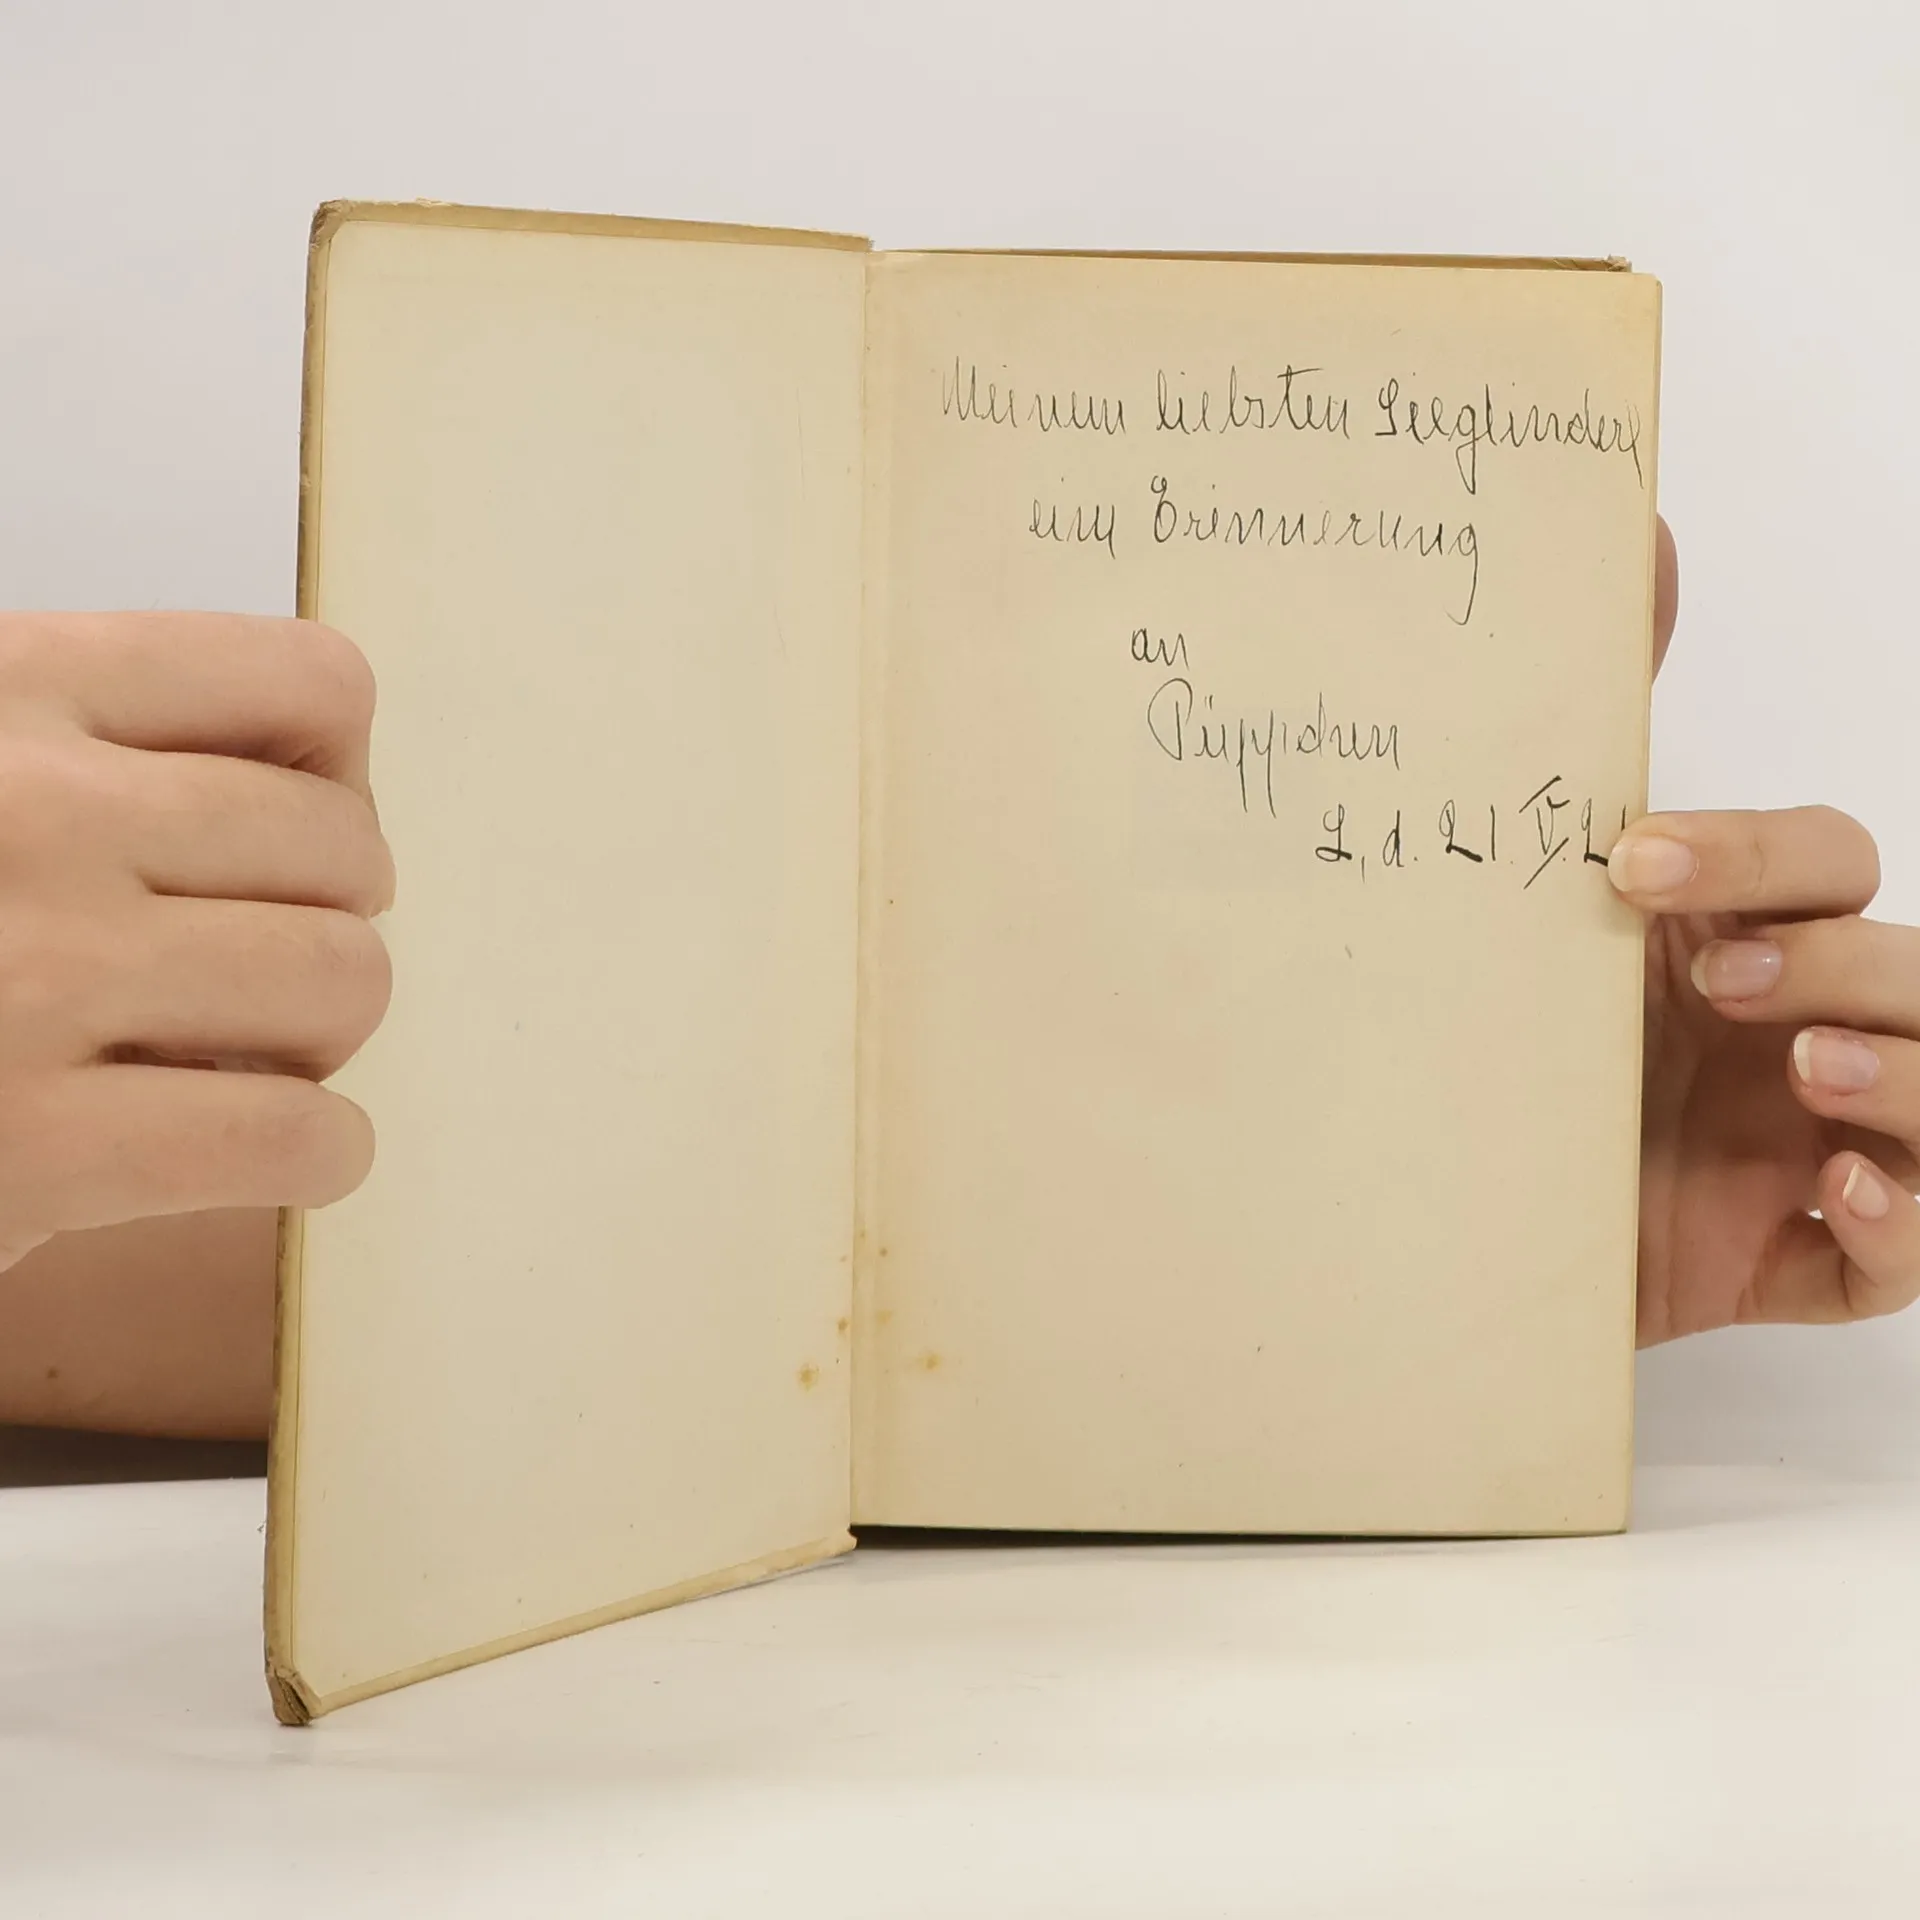 Meinem liebsten Sieglinderl
eine Erinnerung
an
Püppchen
L, d. 21. V. 2